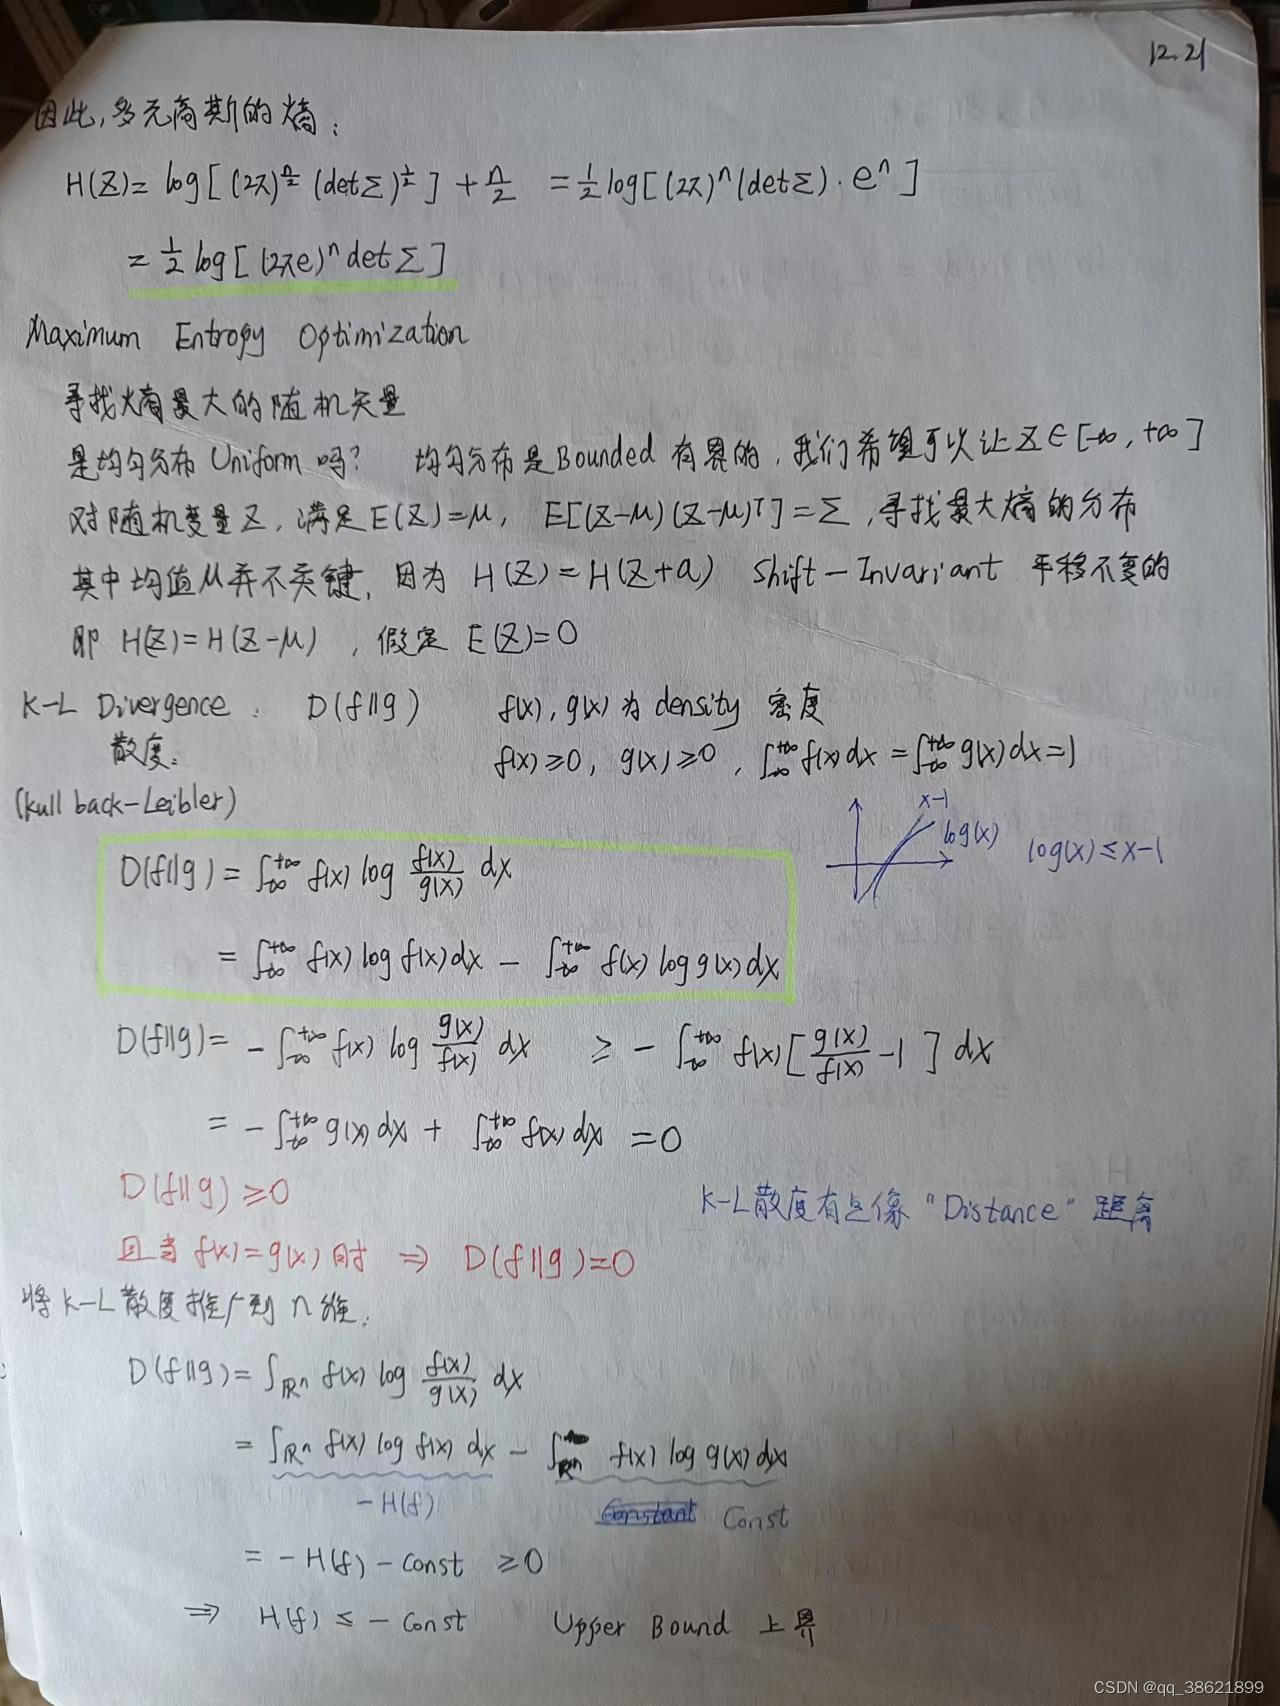 12.21
因此,多元高斯的熵:
H(Z)= log[(2π)^{n/2} (detΣ)^{1/2}] + n/2 = 1/2 log[(2π)^n (detΣ)·e^n]
= 1/2 log[(2πe)^n detΣ]
Maximum Entropy Optimization
寻找熵最大的随机矢量
是均匀分布 Uniform 吗? 均匀分布是Bounded 有界的,我们希望可以让 Z∈[-∞,+∞]
对随机变量Z,满足E(Z)=μ, E[(Z-μ)(Z-μ)^T]=Σ,寻找最大熵的分布
其中均值μ并不关键,因为 H(Z)=H(Z+a) Shift-Invariant 平移不变的
即 H(Z)=H(Z-μ) ,假定 E(Z)=0
K-L Divergence: D(f||g) f(x),g(x)为density 密度
散度: f(x)≥0, g(x)≥0, ∫_{-∞}^{+∞} f(x)dx = ∫_{-∞}^{+∞} g(x)dx=1
(Kullback-Leibler)
x-1
log(x) log(x)≤x-1
D(f||g) = ∫_{-∞}^{+∞} f(x) log f(x)/g(x) dx
= ∫_{-∞}^{+∞} f(x) log f(x)dx - ∫_{-∞}^{+∞} f(x) log g(x)dx
D(f||g)= -∫_{-∞}^{+∞} f(x) log g(x)/f(x) dx ≥ -∫_{-∞}^{+∞} f(x)[g(x)/f(x) -1] dx
= -∫_{-∞}^{+∞} g(x)dx + ∫_{-∞}^{+∞} f(x)dx =0
D(f||g)≥0
K-L散度有点像"Distance"距离
且当 f(x)=g(x) 时 ⇒ D(f||g)=0
将K-L散度推广到n维:
D(f||g)= ∫_{ℝ^n} f(x) log f(x)/g(x) dx
= ∫_{ℝ^n} f(x) log f(x) dx - ∫_{ℝ^n} f(x) log g(x)dx
-H(f) Constant Const
= -H(f) - Const ≥0
⇒ H(f) ≤ - Const Upper Bound 上界
CSDN @qq_38621899